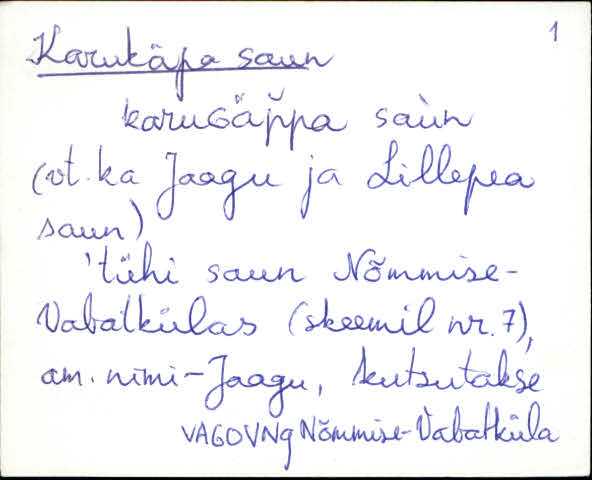 1
Karukäpa saun
karuGäp̆pa saùn
(vt. ka Jaagu ja Lillepea
saun)
'tühi saun Nõmmise-
Vabatkülas (skeemil nr. 7),
am. nimi-Jaagu, kutsutakse
VAGOVNg Nõmmise-Vabatküla